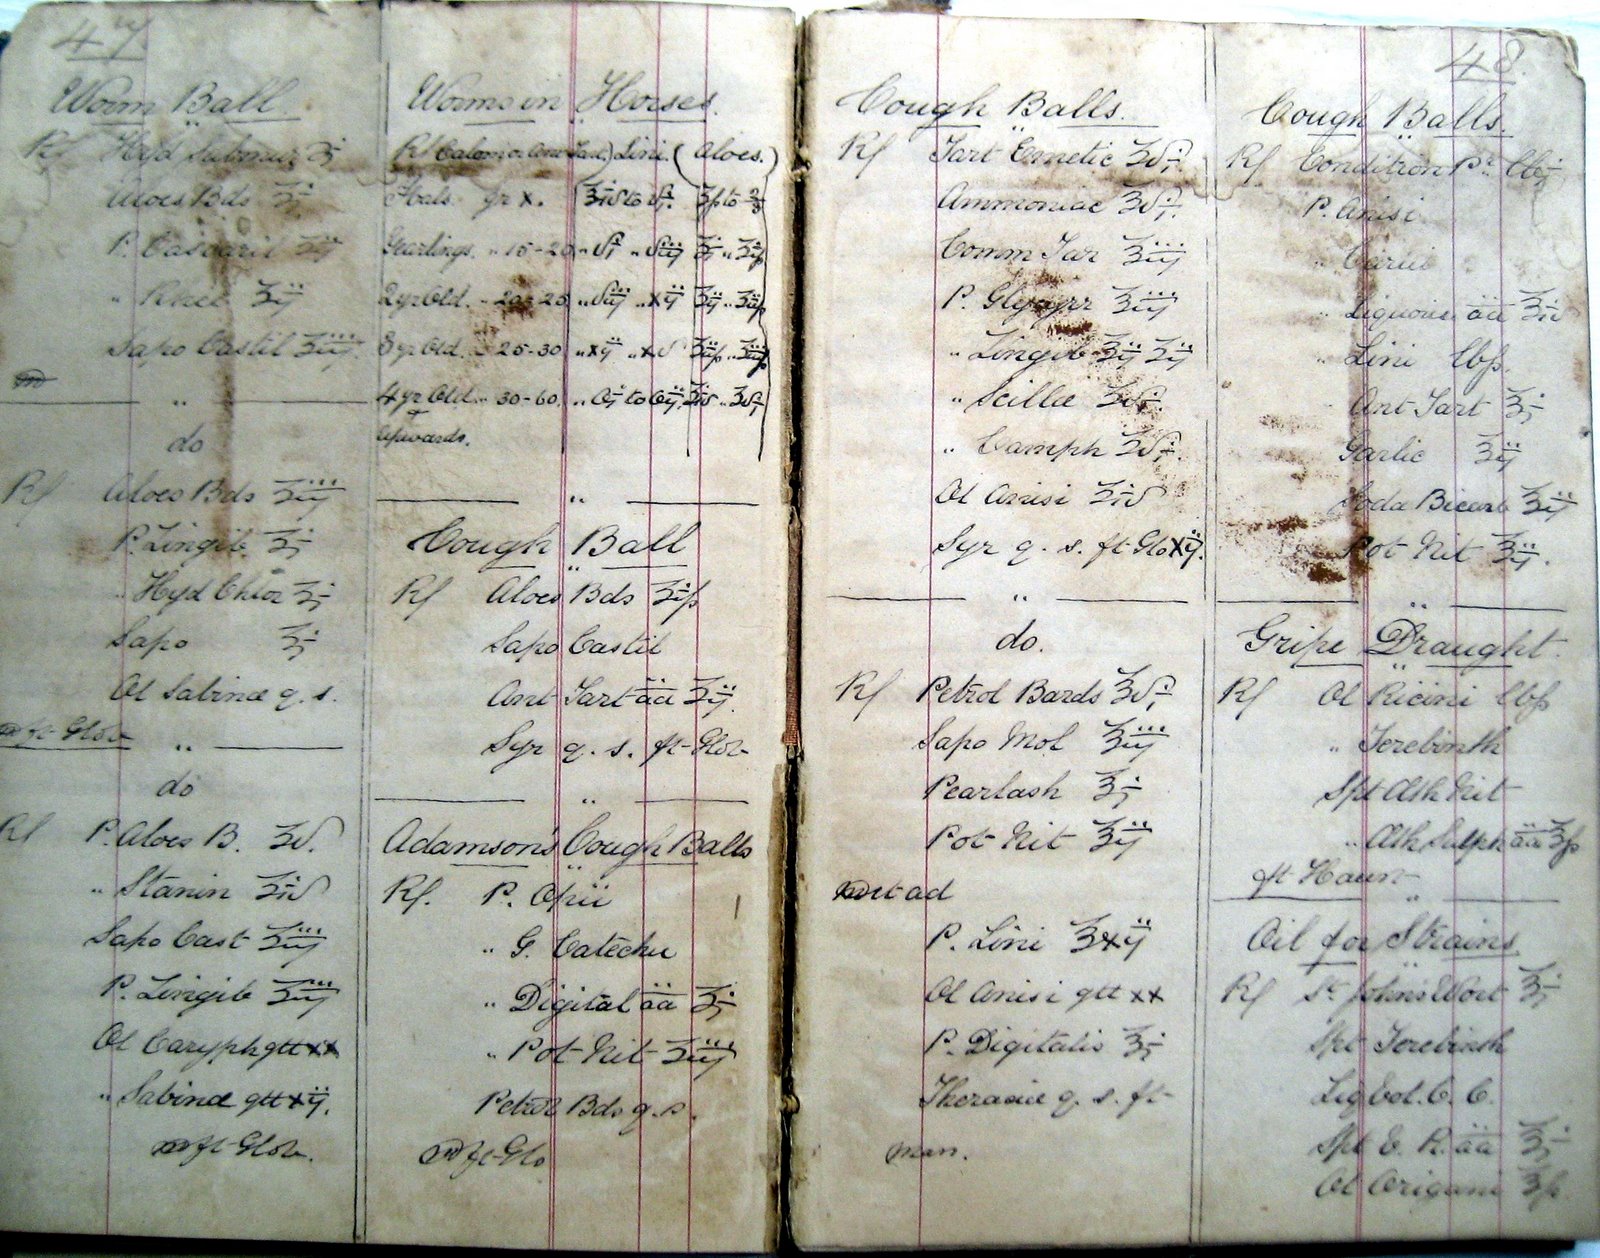 47
Worm Ball
Rx Hyd Submur ʒj
Aloes Bds ʒj
P. Cascaril ʒij
" Rhei ʒij
Sapo Castil ʒiij
"
do
Rx Aloes Bds ʒiij
P. Zingib ʒj
" Hyd Chlor ʒj
Sapo ʒj
Ol Sabinae q. s.
ft Glob
"
do
Rx P. Aloes B. ʒv.
" Stanin ʒiv
Sapo Cast ʒiij
P. Zingib ʒiij
Ol Caryph gtt xx
" Sabinae gtt xij.
m ft Glob.
Worms in Horses.
Rx Calomor Ant Tart) Lini. (Aloes.)
Foals. gr x. ʒiv to vj.
Yearlings. " 15-20 " vj " viij
2 yr Old. " 20-25 " viij " xij
3 yr Old. " 25-30 " xij " xv
4 yr Old. " 30-60. " Oj to Oij. ʒiv " ʒvj
+ upwards.
"
Cough Ball
Rx Aloes Bds ʒiß
Sapo Castil
Ant Tart āā ʒij.
Syr q. s. ft Glob
"
Adamson's Cough Balls
Rx. P. Opii
" G. Catechu
" Digital āā ʒj
" Pot Nit ʒiij
Petrol Bds q. s.
m ft Glo
48.
Cough Balls.
Rx Tart Emetic ʒvj.
Ammoniac ʒvj.
Comm Tar ʒiij
P. Glycyrr ʒiij
" Zingib ʒij ʒij
" Scillae ʒvj.
" Camph ʒvj.
Ol Anisi ʒiv
Syr q. s. ft Glo xij.
"
do.
Rx Petrol Bards ʒvj
Sapo Mol ʒiij
Pearlash ʒj
Pot Nit ʒij
m et ad
P. Lini ʒxij
Ol Anisi gtt xx
P. Digitalis ʒj
Theraciae q. s. ft
man.
Cough Balls.
Rx Condition Pr. lbj
P. Anisi
" Carui
" Liquoric āā ʒiv
" Lini lbß.
Ant Tart ʒj
Garlic ʒij
Soda Bicarb ʒij
Pot Nit ʒij.
"
Gripe Draught.
Rx Ol Ricini lbß
" Terebinth
Spt Æth Nit
" Æth Sulph āā ʒß
ft Haust
"
Oil for Strains
Rx St. John's Wort ʒj
Spt Terebinth
Liq Vol. C. C.
Spt V. R. āā ʒj
Ol Origani ʒß